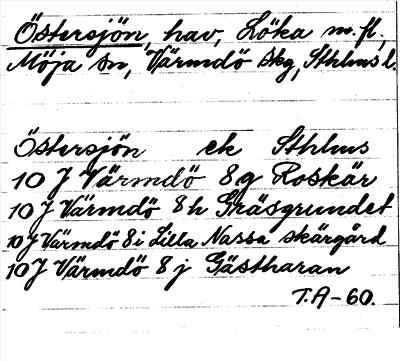 Östersjön, hav, Löka m.fl.,
Möja sn, Värmdö skg, Sthlms l.
Östersjön ek Sthlms
10 J Värmdö 8g Roskär
10 J Värmdö 8h Gräsgrundet
10 J Värmdö 8i Lilla Nassa skärgård
10 J Värmdö 8j Gästharan
T.A-60.